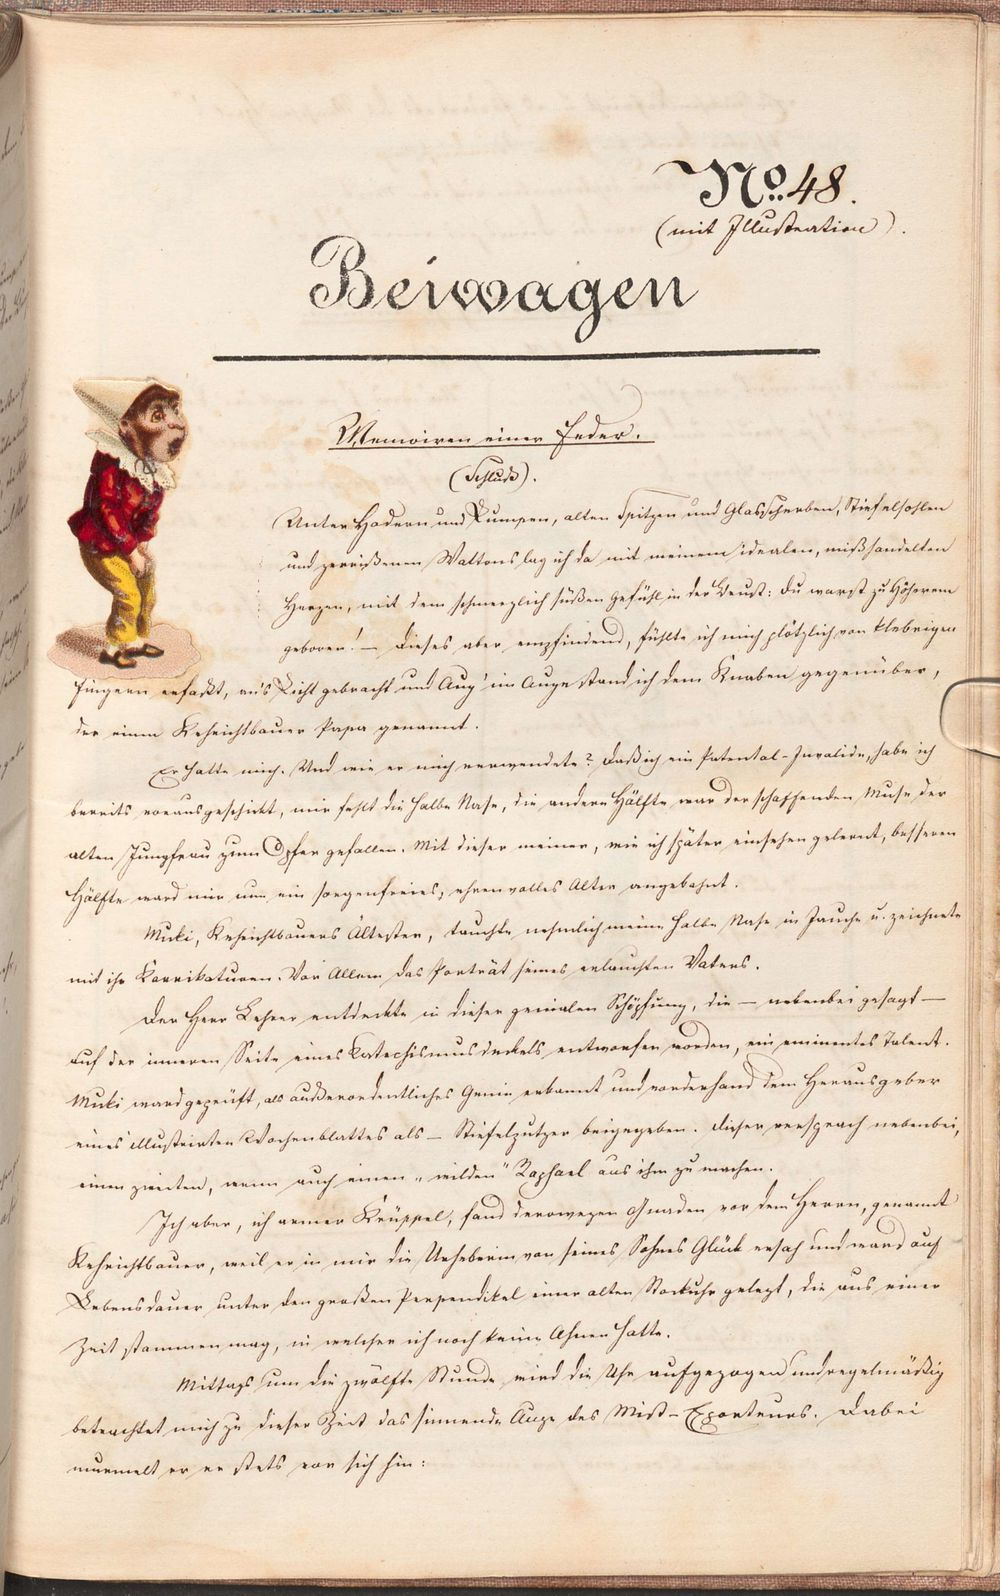 No. 48.
(mit Illustration).
Beiwagen
Memoiren einer Feder.
(Schluß).
Unter Hadern und Lumpen, alten Spitzen und Glasscherben, Stiefelsohlen
und zerrißenen Wattons lag ich da mit meinem idealen, mißhandelten
Herzen, mit dem schmerzlich süßen Gefühl in der Brust: du warst zu Höherem
geboren! – Dieses aber empfindend, fühlte ich mich plötzlich von klebrigen
Fingern erfaßt, an's Licht gebracht und Aug' im Auge stand ich dem Knaben gegenüber,
der einen Kehrichtbauer Papa genannt.
Er hatte mich. Und wie er mich verwendete? Daß ich ein Patental-Invalide, habe ich
bereits vorausgeschickt, mir fehlt die halbe Nase, die andere Hälfte war der schaffenden Muse der
alten Jungfrau zum Opfer gefallen. Mit dieser meiner, wie ich später einsehen gelernt, besseren
Hälfte ward mir nun ein sorgenfreies, ehrenvolles Alter angebahnt.
Muki, Kehrichtbauers Ältester, tauchte nehmlich meine halbe Nase in Jauche u. zeichnete
mit ihr Karrikaturen. Vor Allem das Porträt seines erlauchten Vaters.
Der Herr Lehrer entdeckte in dieser genialen Schöpfung, die – nebenbei gesagt –
auf der inneren Seite eines Katechismusdeckels entworfen worden, ein eminentes Talent.
Muki ward geprüft, als außerordentliches Genie erkannt und vorderhand dem Herausgeber
eines illustrirten Wochenblattes als – Stiefelputzer beigegeben. Dieser versprach nebenbei,
einen zweiten, wenn auch einen „wilden" Raphael aus ihm zu machen.
Ich aber, ich armer Krüppel, fand derowegen Gnaden vor dem Herrn, genannt
Kehrichtbauer, weil er in mir die Urheberin von seines Sohnes Glück ersah und ward auf
Lebensdauer unter den großen Perpendikel einer alten Stockuhr gelegt, die aus einer
Zeit stammen mag, in welcher ich noch keine Ahnen hatte.
Mittags um die zwölfte Stunde wird die Uhr aufgezogen und regelmäßig
betrachtet mich zu dieser Zeit das sinnende Auge des Mist-Exporteurs. Dabei
murmelt er er stets vor sich hin: